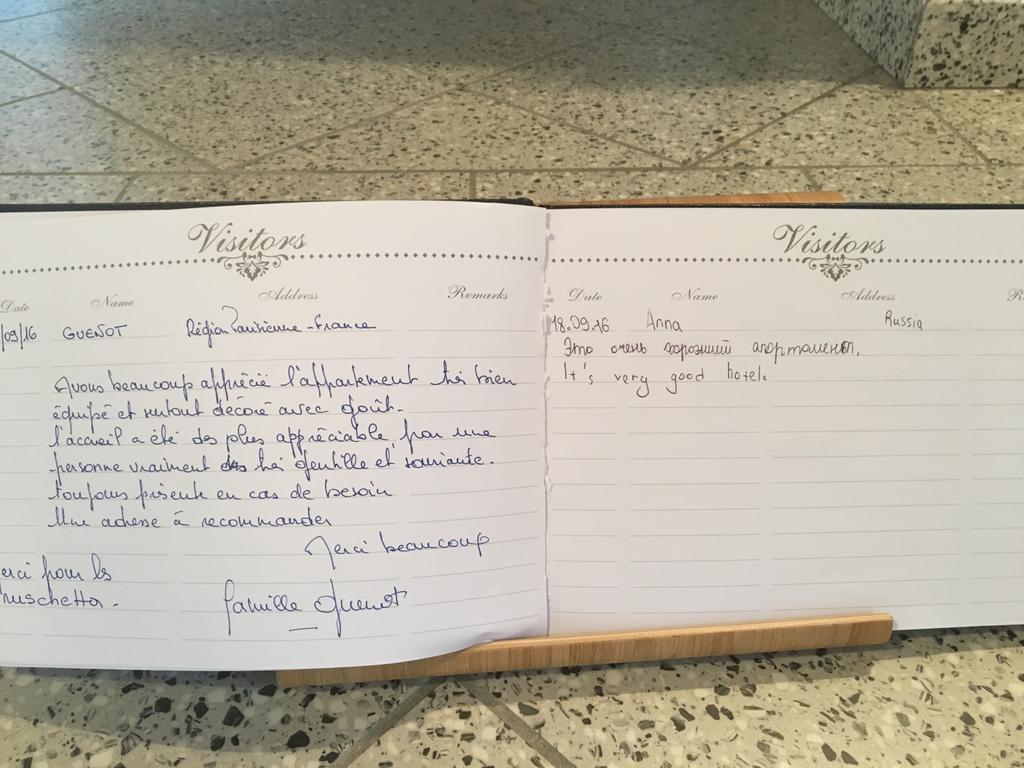 Visitors
Date Name Address Remarks
/09/16 GUENOT Région Parisienne - France
Avons beaucoup apprécié l'appartement très bien
équipé et surtout décoré avec goût.
l'accueil a été des plus appréciable, par une
personne vraiment très gentille et souriante.
toujours présente en cas de besoin
Une adresse à recommander
Merci beaucoup
erci pour les
ruschetta.
famille Guenot
Visitors
Date Name Address R
18.09.16 Anna Russia
Это очень хороший
It's very good hotel.